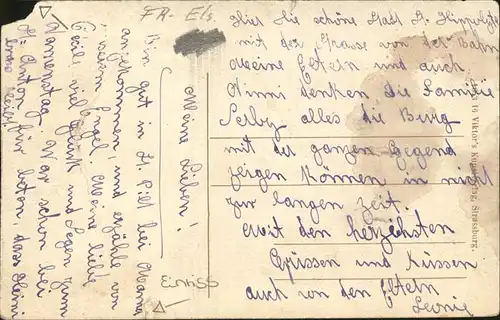 FR- Els.
Meine Lieben!
Bin gut in St. Pilt bei Mama
angekommen, und erzähle von
seinem Engel. Meine liebe
Cécile, viel Glück und Segen zum
Namenstag. War schon bei
St. Anton für beten, dass Heini
Hier die schöne Stadt St. Hippolyt
mit der Strasse von der Bahn
Meine Eltern und auch
Ninni denken die Familie
alles die Burg
mit der ganzen Gegend
zeigen können, in nicht
zur langen Zeit.
Mit den herzlichsten
Grüssen und Küssen
auch von den Eltern
Leonie
Einriss
Viktor's Kunstverlag, Strassburg.